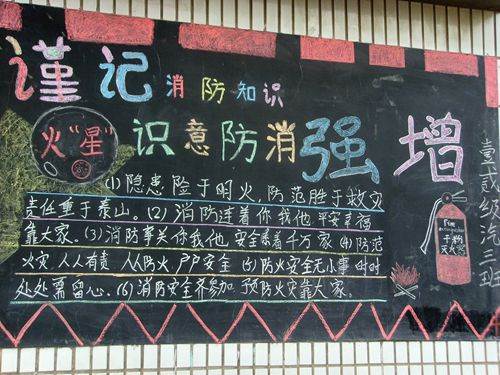 谨记消防知识
火"星"
识意防消强增
(1)隐患险于明火,防范胜于救灾
责任重于泰山。(2)消防连着你我他 平安幸福
靠大家。(3)消防事关你我他,安全系着千万家 (4)防范
火灾 人人有责 人人防火 户户安全 (5)防火安全无小事 时时
处处需留心。(6)消防安全齐参加 预防火灾靠大家。
Fire
干粉
灭火器
壹贰级汽三班